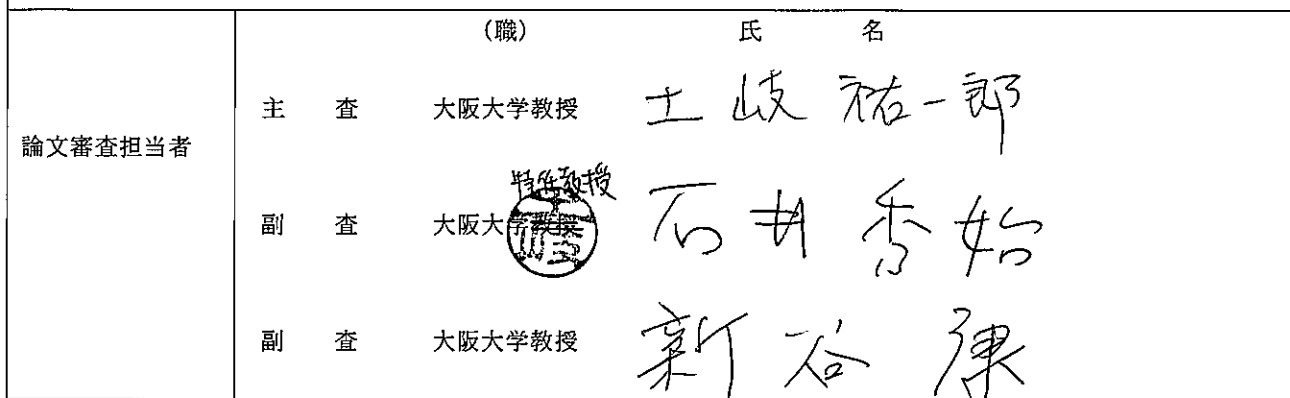 (職) 氏 名
論文審査担当者
主 査 大阪大学教授 土岐祐一郎
特任教授
副 査 大阪大学教授 石井秀始
副 査 大阪大学教授 新谷康